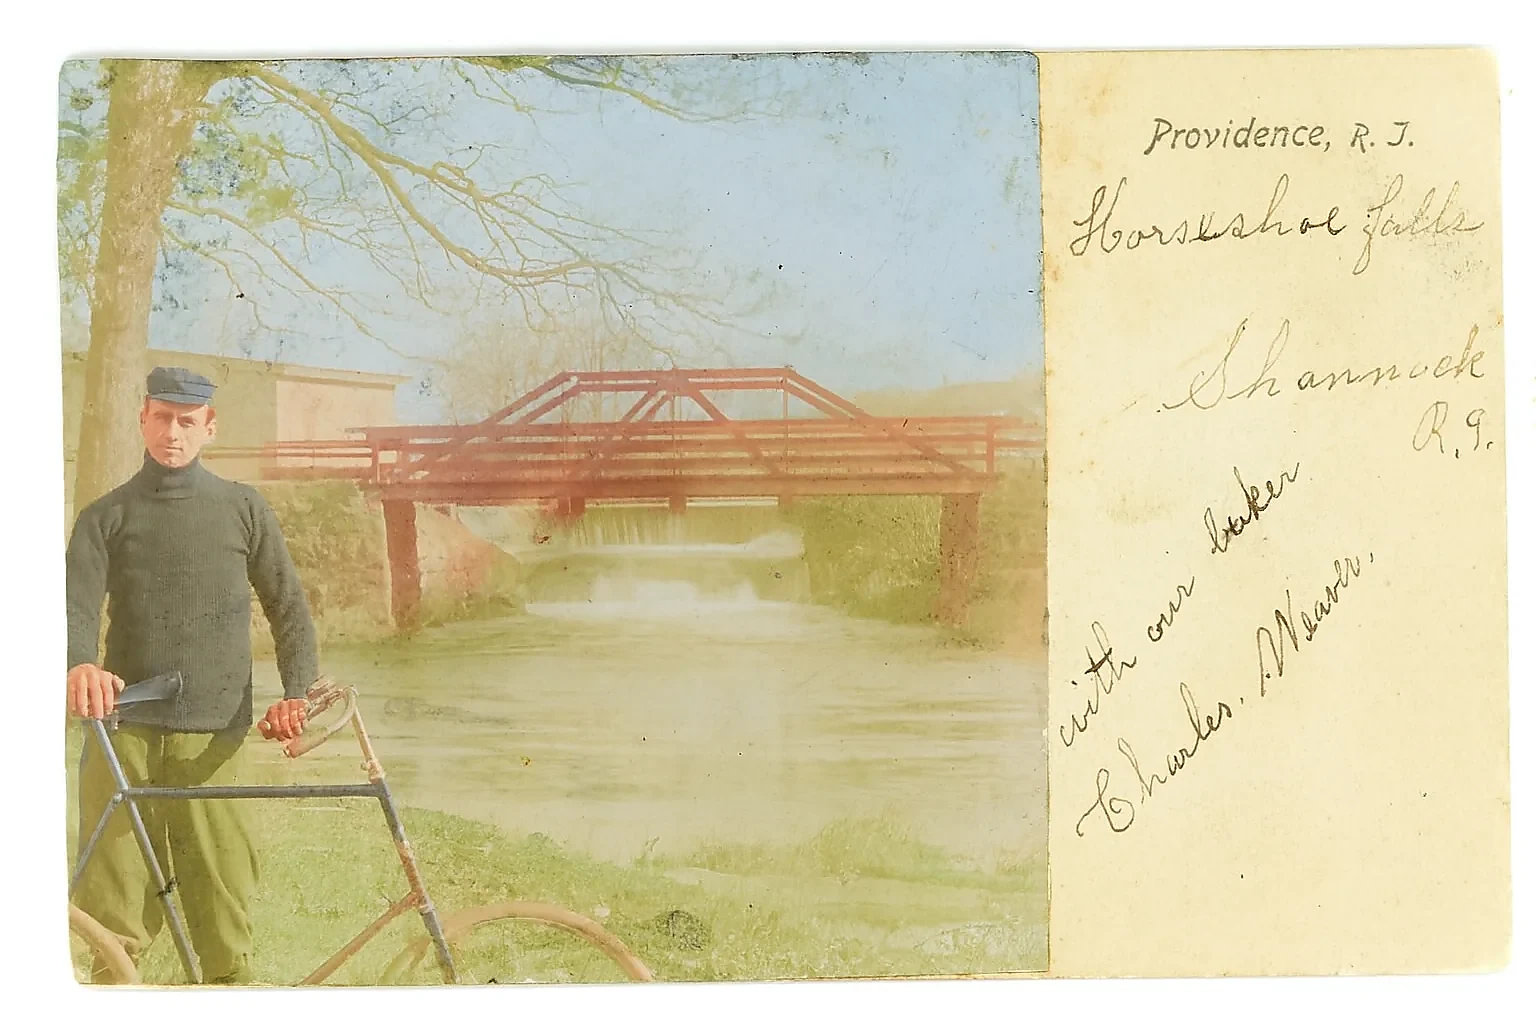 Providence, R. I.
Horseshoe falls
Shannock
R. I.
with our baker
Charles. Weaver.